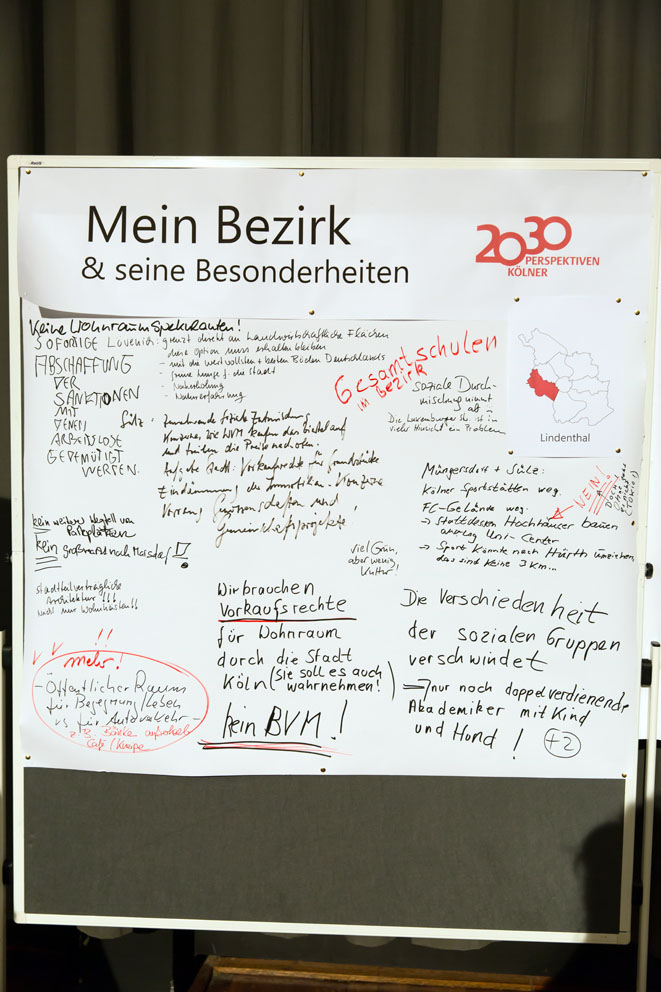 Mein Bezirk
& seine Besonderheiten
2030
PERSPEKTIVEN
KÖLNER
Keine Wohnraum Spekulanten!
SOFORTIGE
ABSCHAFFUNG
DER
SANKTIONEN
MIT
DENEN
ARBEITSLOSE
GEDEMÜTIGT
WERDEN.
Lövenich: grenzt direkt an Landwirtschaftliche Flächen
diese Option muss erhalten bleiben
- mit die wertvollsten + besten Böden Deutschlands
- grüne Lunge f. die Stadt
- Naherholung
- Naturerfahrung
Gesamtschulen
im Bezirk
soziale Durch-
mischung nimmt
ab -
Die Luxemburger Str. ist in
vieler Hinsicht ein Problem
Lindenthal
Sülz: Zunehmende soziale
Konzerne, wie BVM kaufen das Viertel auf
und treiben die Preise nach oben.
Aufgabe Stadt: Vorkaufsrechte für Grundstücke
Eindämmung der Immobilien-
Vorrang Genossenschaften und
Gemeinschaftsprojekte!
Müngersdorf + Sülz:
Kölner Sportstätten weg.
FC-Gelände weg.
→ Stattdessen Hochhäuser bauen
analog Uni-Center
→ Sport könnte nach Hürth umziehen
das sind keine 3 km...
NEIN!
DOCH!
kein weiterer Wegfall von
Parkplätzen
kein Großmarkt nach Marsdorf!
viel Grün,
aber wenig
Kultur!
stadtteilverträgliche
Architektur!!!
nicht nur Wohnkästen!!
!!
mehr!
- Öffentlicher Raum
für Begegnung/Leben
vs für Autoverkehr -
z.B.
Café/Kneipe
Wir brauchen
Vorkaufsrechte
für Wohnraum
durch die Stadt
Köln (sie soll es auch
wahrnehmen!)
kein BVM!
Die Verschiedenheit
der sozialen Gruppen
verschwindet
⇒ nur noch doppelverdienende
Akademiker mit Kind
und Hund!
+2